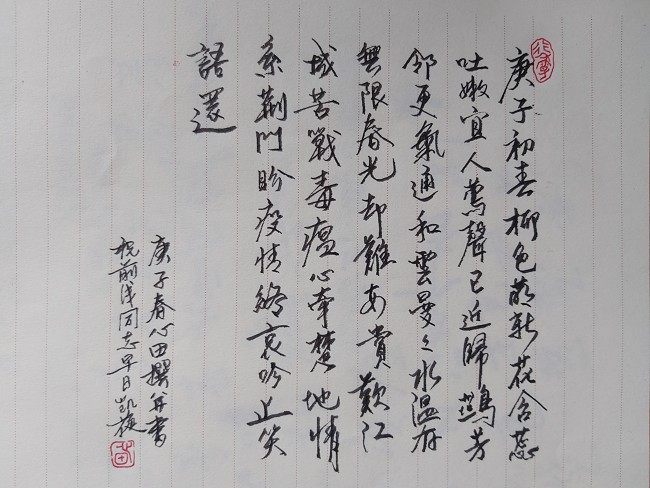 庚子初春柳色萌新花含蕊
吐嫩宜人鶯聲已近歸芳
邻更氣通和雲曼々水温存
無限春光却難安賞歎江
城苦戰毒瘟心牽楚地情
系荆門盼疫情終哀吟止笑
語還
庚子春心田撰并書
祝前线同志早日凱旋